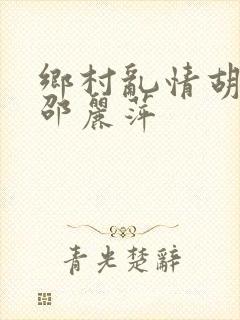 鄉村亂情胡
邵麗萍
青光楚辭